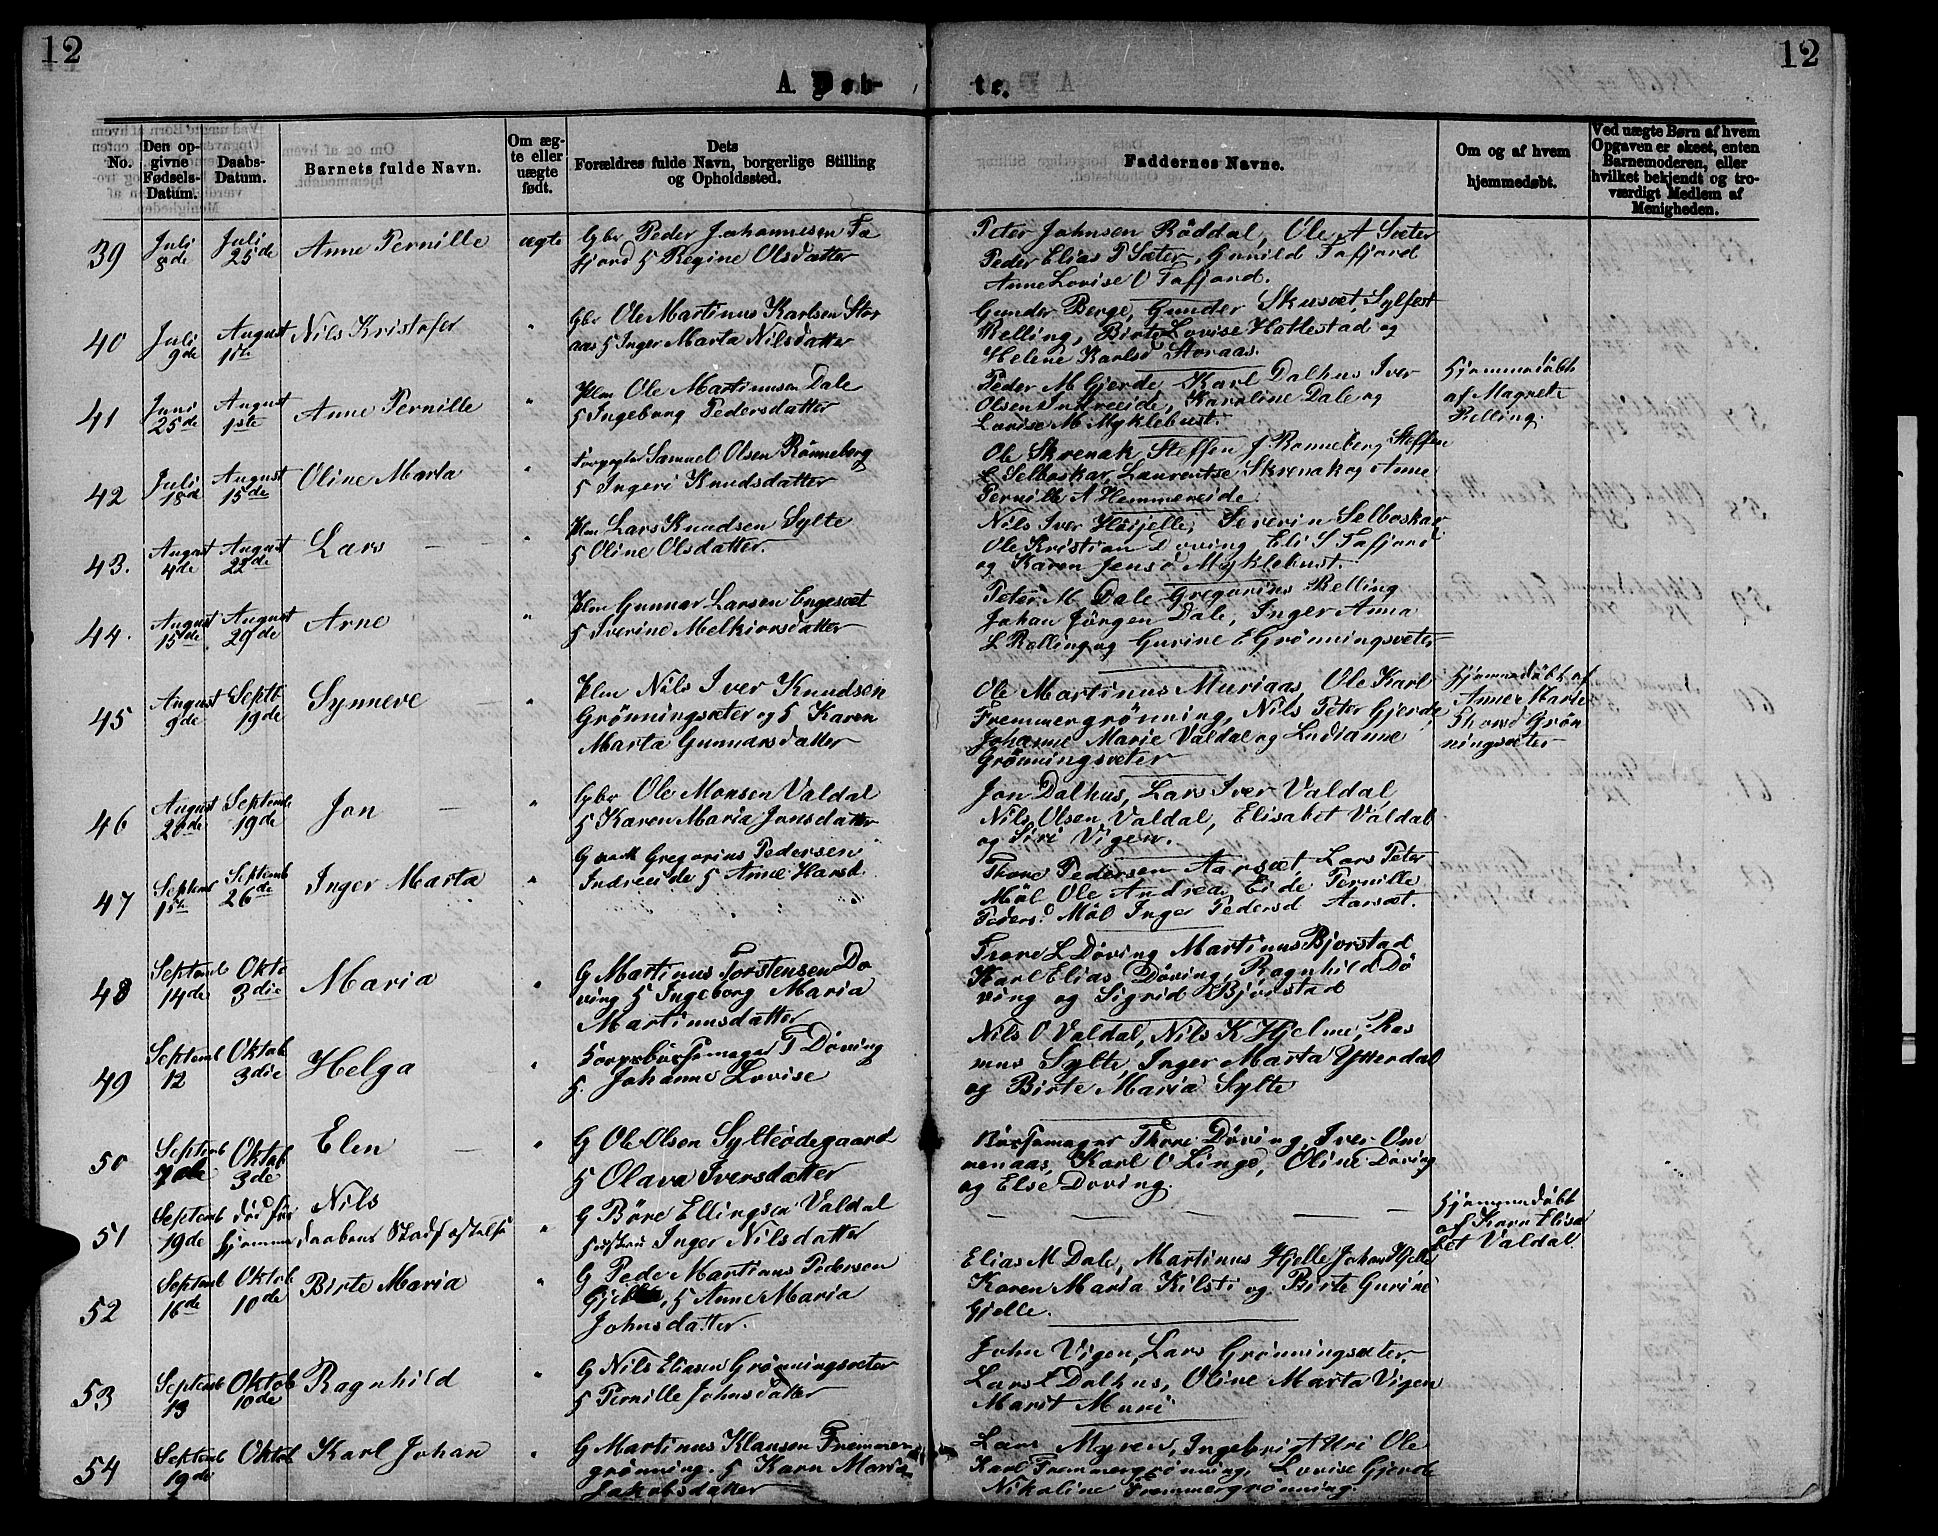 12
12
A. Døb-
te.
No.
Den op-
givne
Fødsels-
Datum.
Daabs-
Datum.
Barnets fulde Navn.
Om æg-
te eller
uægte
født.
Dets
Forældres fulde Navn, borgerlige Stilling
og Opholdssted.
Faddernes Navne.
Om og af hvem
hjemmedøbt.
Ved uægte Børn af hvem
Opgaven er skeet, enten
Barnemoderen, eller
hvilket bekjendt og tro-
værdigt Medlem af
Menigheden.
39
Juli
8de
Juli
25de
Anne Pernille
ægte
Gbr Peder Johannesen Ta
fjord H Regine Olsdatter
Peter Johnsen Röddal, Ole A Sæter
Peder Elias P Sæter, Gunild Tafjord
Anne Lovise O Tafjord.
40
Juli
9de
August
1ste
Nils Kristofer
"
Gbr Ole Martinus Karlsen Stor
aas H Inger Marta Nilsdatter
Gunder Berge, Gunder Skusæt, Sylfest
Relling, Birte Lovise Hattestad og
Helene Karlsd Storaas.
41
Juni
25de
August
1ste
Anne Pernille
"
Hlm Ole Martinusen Dale
H Ingeborg Pedersdatter
Peder M Gjerde, Karl Dalhus Iver
Olsen Indreeide, Karoline Dale og
Lovise M Myklebust.
Hjemmedöbt
af Magnete
Relling.
42
Juli
18de
August
15de
Oline Marta
"
Forpagter Samuel Olsen Rönneberg
H Ingeri Knudsdatter
Ole Skrenak, Steffen J Ronneberg Steffen
E Selboskar, Laurentse Skrenak og Anne
Pernille A Hemmereide
43.
August
4de
August
22de
Lars
"
Hlm Lars Knudsen Sylte
H Oline Olsdatter.
Nils Iver Höjelle, Severin Selboskar
Ole Kristian Döving Eli S Tafjord
og Karen Jensd Myklebust.
44.
August
15de
August
29de
Arne
"
Hlm Gunnar Larsen Engesæt
H Iverine Melkiorsdatter
Peter M Dale Gregorius Relling
Johan Jörgen Dale, Inger Anna
L Relling og Gurine E Grönningsæter
45
August
9de
Septb
19de
Synneve
"
Hlm Nils Iver Knudsen
Grönningsæter og H Karen
Marta Gunnarsdatter
Ole Martinus Muriaas, Ole Karl
Fremmergrönning, Nils Peter Gjerde
Johanne Marie Valdal og Ludianne
Grönningsæter
Hjemmedöbt af
Anne Marte
Thorsd Grön
ningsæter
46
August
26de
Septemb
19de
Jon
"
Gbr Ole Monsen Valdal
H Karen Maria Jonsdatter
Jon Dalhus, Lars Iver Valdal
Nils Olsen Valdal, Elisabet Valdal
og Siri Vigen.
47
Septemb
1ste
Septemb
26de
Inger Marta
"
Gregorius Pedersen
Indreeide H Anne Hansd
Thore Pedersen Aarsæt, Lars Peter
Möl Ole Andrea Eide Pernille
Pedersd Möl Inger Pedersd Aarsæt.
48
Septemb
14de
Okto
3die
Maria
"
G Martinus Torstensen Dö
ving H Ingeborg Maria
Martinusdatter
Tore L Döving Martinus Bjorstad
Karl Elias Döving, Ragnhild Dö
ving og Sigrid Bjorstad
49
Septemb
12
Oktob
3die
Helga
"
T Döving
H. Johanne Lovise
Nils O Valdal, Nils K Hjelme, Ras
mus Sylte, Inger Marta Ytterdal
og Birte Maria Sylte
50
Septemb
7de
Oktob
3de
Elen
"
G Ole Olsen Sylteödegaard
H Olava Iversdatter
Börsemager Thore Döving, Iver Om
menaas, Karl O Linge, Oline Döving
og Else Doving.
51
Septemb
19de
död för
hjemme
Nils
daabens Stadfæstelse
"
G Böre Ellingsen Valdal
Hustru Inger Nilsdatter
Hjemmedöbt
af Karn Elisa
bet Valdal.
52
Septemb
16de
Oktob
10de
Birte Maria
"
G Pede Martinus Pedersen
H Anne Maria
Johnsdatter.
Elias M Dale, Martinus Hjelle Johan Hjelle
Karen Maria Kilsti og Birte Gurine
Gjelle.
53
Septemb
13
Oktob
10de
Ragnhild
"
G Nils Eliasen Grönningsæter
H Pernille Johnsdatter
John Vigen, Lars Grönningsæter.
Lars E Dalhus, Oline Marta Vigen
Marit Muri
54
Septemb
19de
Oktob
Karl Johan
"
G Martinus Klausen Fremmer
grönning. H Karn Maria
Jakobsdatter
Lars Myren, Ingebrigt Uri Ole
Karl Fremmergrönning, Lovise Gjerde
Nikoline Fremmergrönning.